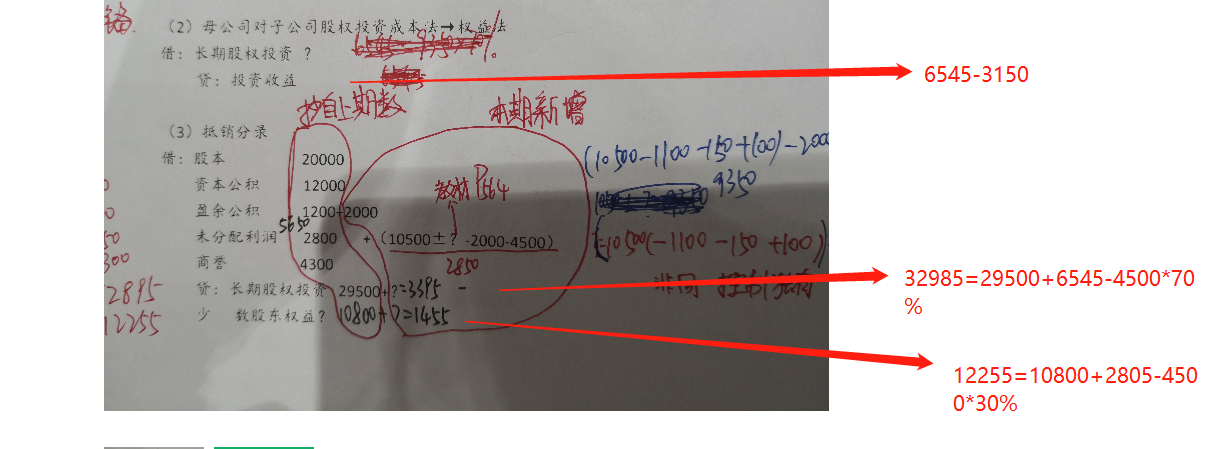 （2）母公司对子公司股权投资成本法→权益法
借：长期股权投资 ？
贷：投资收益
6545-3150
抄自上期数
本期新增
（3）抵销分录
借：股本 20000
(10500-1100-150+100)-2000
资本公积 12000
教材P564
9350
盈余公积 1200+2000
5650
未分配利润 2800 +（10500±？-2000-4500）
=10500(-1100-150+100)
2850
商誉 4300
贷：长期股权投资 29500+?=3395 -
32985=29500+6545-4500*70
%
2895
少 数股东权益？ 10800+?=1455
12255
12255=10800+2805-450
0*30%